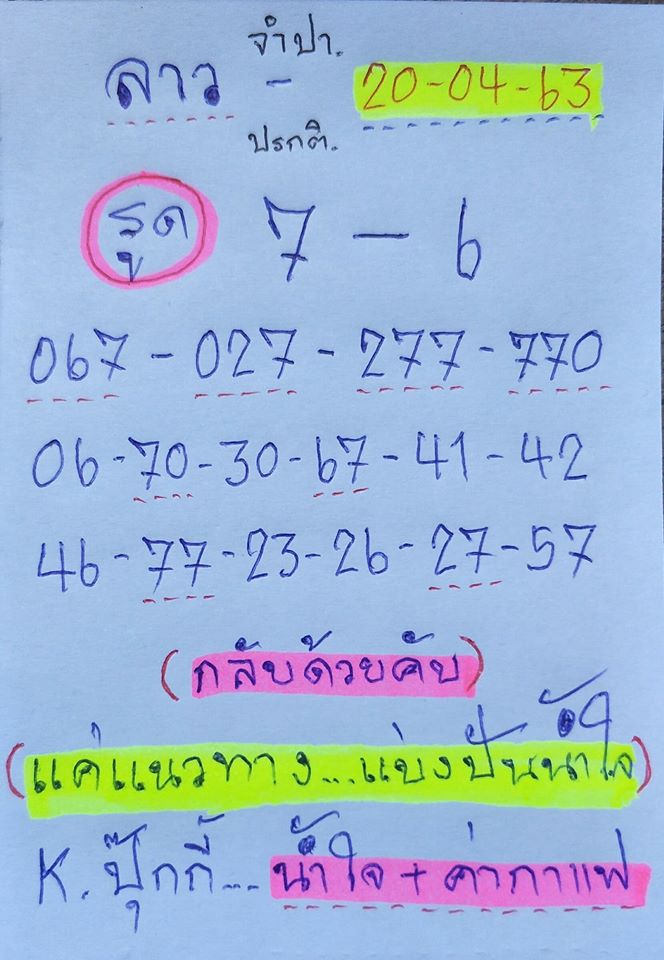 จำปา.
ลาว - 20-04-63
ปรกติ.
รูด 7 - 6
067 - 027 - 277 - 770
06 - 70 - 30 - 67 - 41 - 42
46 - 77 - 23 - 26 - 27 - 57
(กลับด้วยคับ)
(แค่แนวทาง...แบ่งปันน้ำใจ)
K. ปุ๊กกี้... น้ำใจ + ค่ากาแฟ